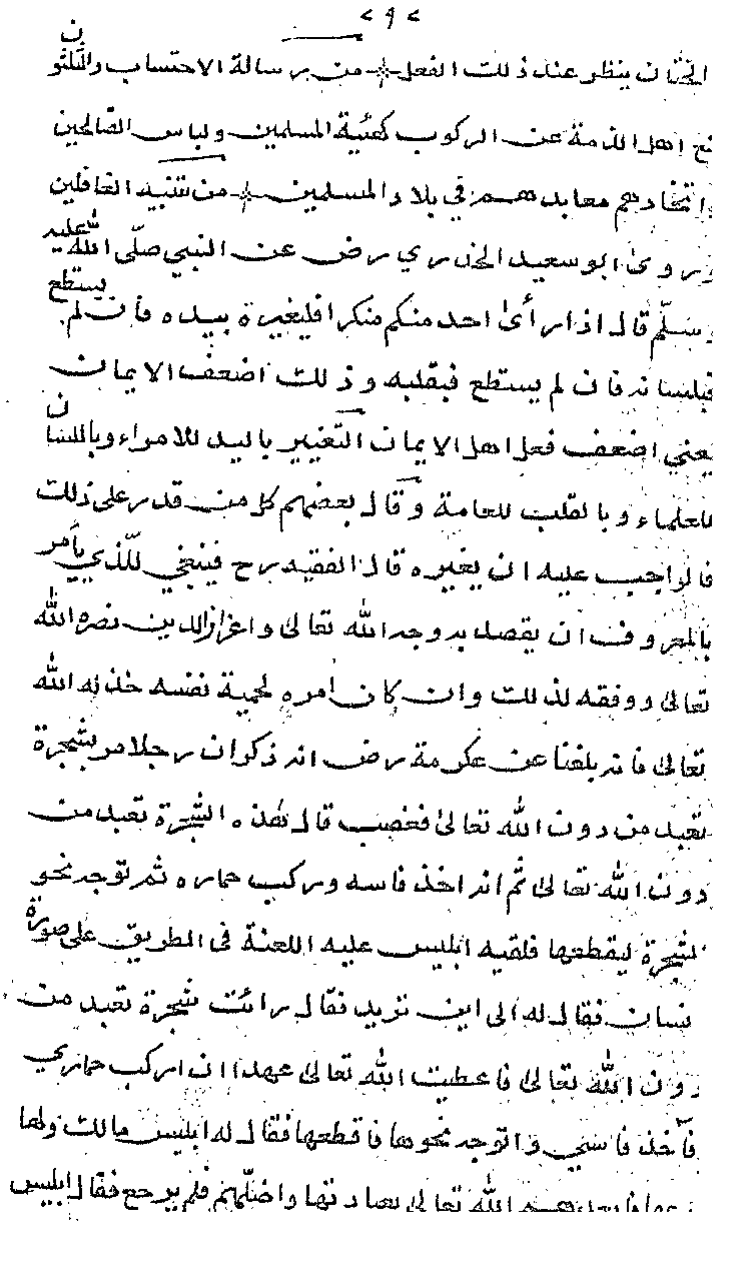 < ٩ >
الختان ينظر عند ذلك الفعل من رسالة الاحتساب والثلثون
اهل الذمة عن الركوب كهئية المسلمين ولباس الصّالحين
واتخادهم معابدهم في بلاد المسلمين من تنبيه الغافلين
وروى ابو سعيد الخدري رض عن النبي صلّى الله عليه
وسلّم قال اذا رأى احد منكم منكرا فليغيرة بيده فأن لم يستطع
فبلسانه فان لم يستطع فبقلبه وذلك اضعف الايمان
يعني اضعف فعل اهل الايمان التغيير باليد للامراء وباللسان
للعلماء وبالقلب للعامة وقال بعضهم كل من قدر على ذلك
فالواجب عليه ان يغيره قال الفقيه رح فينبغي للّذي يأمر
بالمعروف ان يقصد به وجه الله تعالى واعزاز الدين نصره الله
تعالى ووفقه لذلك وان كان امره لحمية نفسه خذله الله
تعالى فانه بلغنا عن عكرمة رض انه ذكر ان رجلا مر بشجرة
تعبد من دون الله تعالى فغضب قال هذه الشجرة تعبد من
دون الله تعالى ثم انه اخذ فاسه وركب حماره ثم توجه نحو
لشجرة ليقطعها فلقيه ابليس عليه اللعنة فى الطريق على صورة
نسان فقال له الى اين تريد فقال رائت شجرة تعبد من
دون الله تعالى فاعطيت الله تعالى عهدا ان اركب حماري
فآخذ فاسي واتوجه نحوها فاقطعها فقال له ابليس مالك ولها
الله تعالى بعبادتها واضلّهم فلم يرجع فقال ابليس